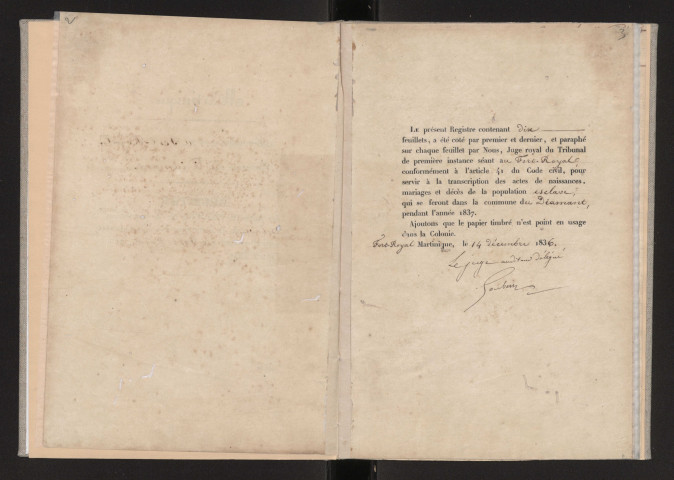 2
3
LE présent Registre contenant dix
feuillets, a été coté par premier et dernier, et paraphé
sur chaque feuillet par Nous, Juge royal du Tribunal
de première instance séant au Fort-Royal,
conformément à l'article 41 du Code civil, pour
servir à la transcription des actes de naissances,
mariages et décès de la population esclave,
qui se feront dans la commune du Diamant,
pendant l'année 1837.
Ajoutons que le papier timbré n'est point en usage
dans la Colonie.
Fort-Royal Martinique, le 14 décembre 1836.
Le juge auditeur délégué